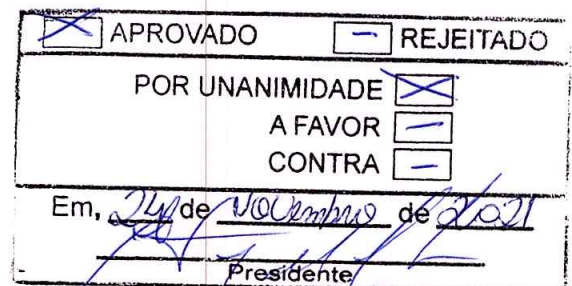 APROVADO - REJEITADO
POR UNANIMIDADE
A FAVOR -
CONTRA -
Em, 24 de Novembro de 2021
Presidente